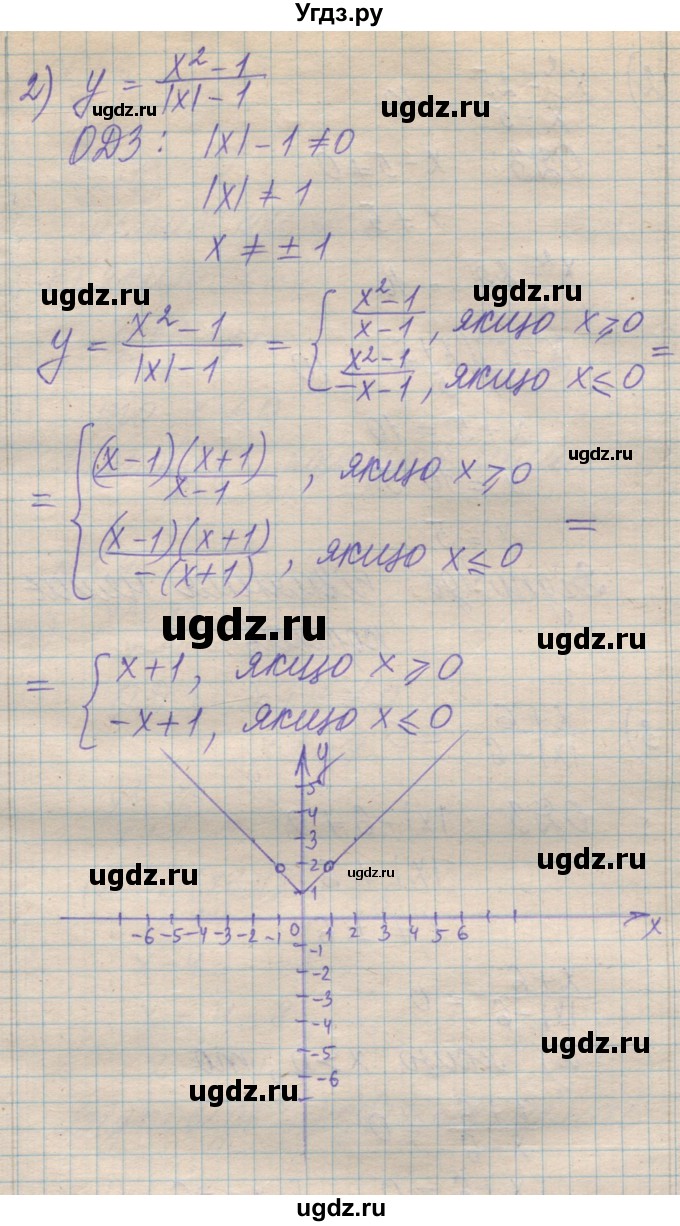 Угдз.ру
2) y = (x² - 1)/(|x| - 1)
ugdz.ru
ugdz.ru
ОДЗ: |x| - 1 ≠ 0
|x| ≠ 1
x ≠ ± 1
ugdz.ru
ugdz.ru
y = (x² - 1)/(|x| - 1) = { (x² - 1)/(x - 1), якщо x ⩾ 0
(x² - 1)/(-x - 1), якщо x ⩽ 0 =
= { (x - 1)(x + 1)/(x - 1), якщо x ⩾ 0
ugdz.ru
(x - 1)(x + 1)/(-(x + 1)), якщо x ⩽ 0 =
ugdz.ru
ugdz.ru
= { x + 1, якщо x ⩾ 0
-x + 1, якщо x ⩽ 0
y
5
4
3
2
1
ugdz.ru
ugdz.ru
ugdz.ru
-6 -5 -4 -3 -2 -1 0 1 2 3 4 5 6 x
-1
-2
-3
-4
-5
-6
ugdz.ru
ugdz.ru
ugdz.ru